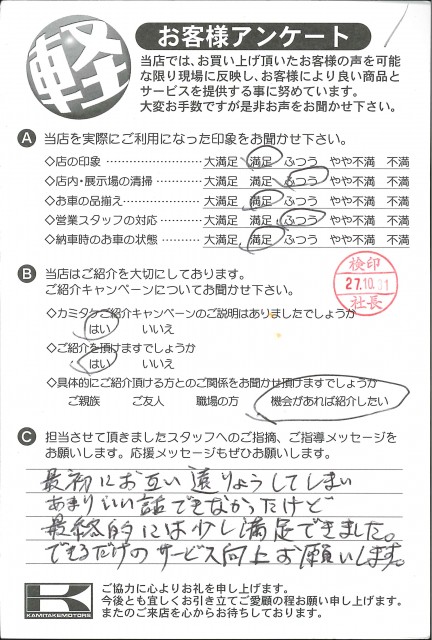 軽
お客様アンケート
当店では、お買い上げ頂いたお客様の声を可能
な限り現場に反映し、お客様により良い商品と
サービスを提供する事に努めています。
大変お手数ですが是非お声をお聞かせ下さい。
A 当店を実際にご利用になった印象をお聞かせ下さい。
◇店の印象 ………………… 大満足 満足 ふつう やや不満 不満
◇店内・展示場の清掃 ……… 大満足 満足 ふつう やや不満 不満
◇お車の品揃え …………… 大満足 満足 ふつう やや不満 不満
◇営業スタッフの対応 ……… 大満足 満足 ふつう やや不満 不満
◇納車時のお車の状態 ……… 大満足 満足 ふつう やや不満 不満
B 当店はご紹介を大切にしております。
ご紹介キャンペーンについてお聞かせ下さい。
検印
27.10.01
社長
◇カミタケご紹介キャンペーンのご説明はありましたでしょうか
はい いいえ
◇ご紹介を頂けますでしょうか
はい いいえ
◇具体的にご紹介頂ける方とのご関係をお聞かせ頂けますでしょうか
ご親族 ご友人 職場の方 機会があれば紹介したい
C 担当させて頂きましたスタッフへのご指摘、ご指導メッセージを
お願いします。応援メッセージもぜひお願いします。
最初にお互い遠りょうしてしまい
あまりいい話できなかったけど
最終的には少し満足できました。
できるだけのサービス向上お願いします。
K
KAMITAKEMOTORS
ご協力に心よりお礼を申し上げます。
今後とも宜しくお引き立てご愛顧の程お願い申し上げます。
またのご来店を心からお待ちしております。